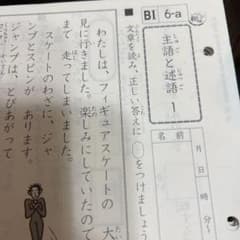 BI 6-a
主語と述語 1
しゅご
じゅつご
月 日 時 分〜
名前
■文章を読み、正しい答えに○をつけましょう
わたしは、フィギュアスケートの大
見に行きました。楽しみにしていたので
まで走ってしまいました。
スケートのわざに、ジャ
ンプとスピンが あります。
ジャンプは、とびあがって